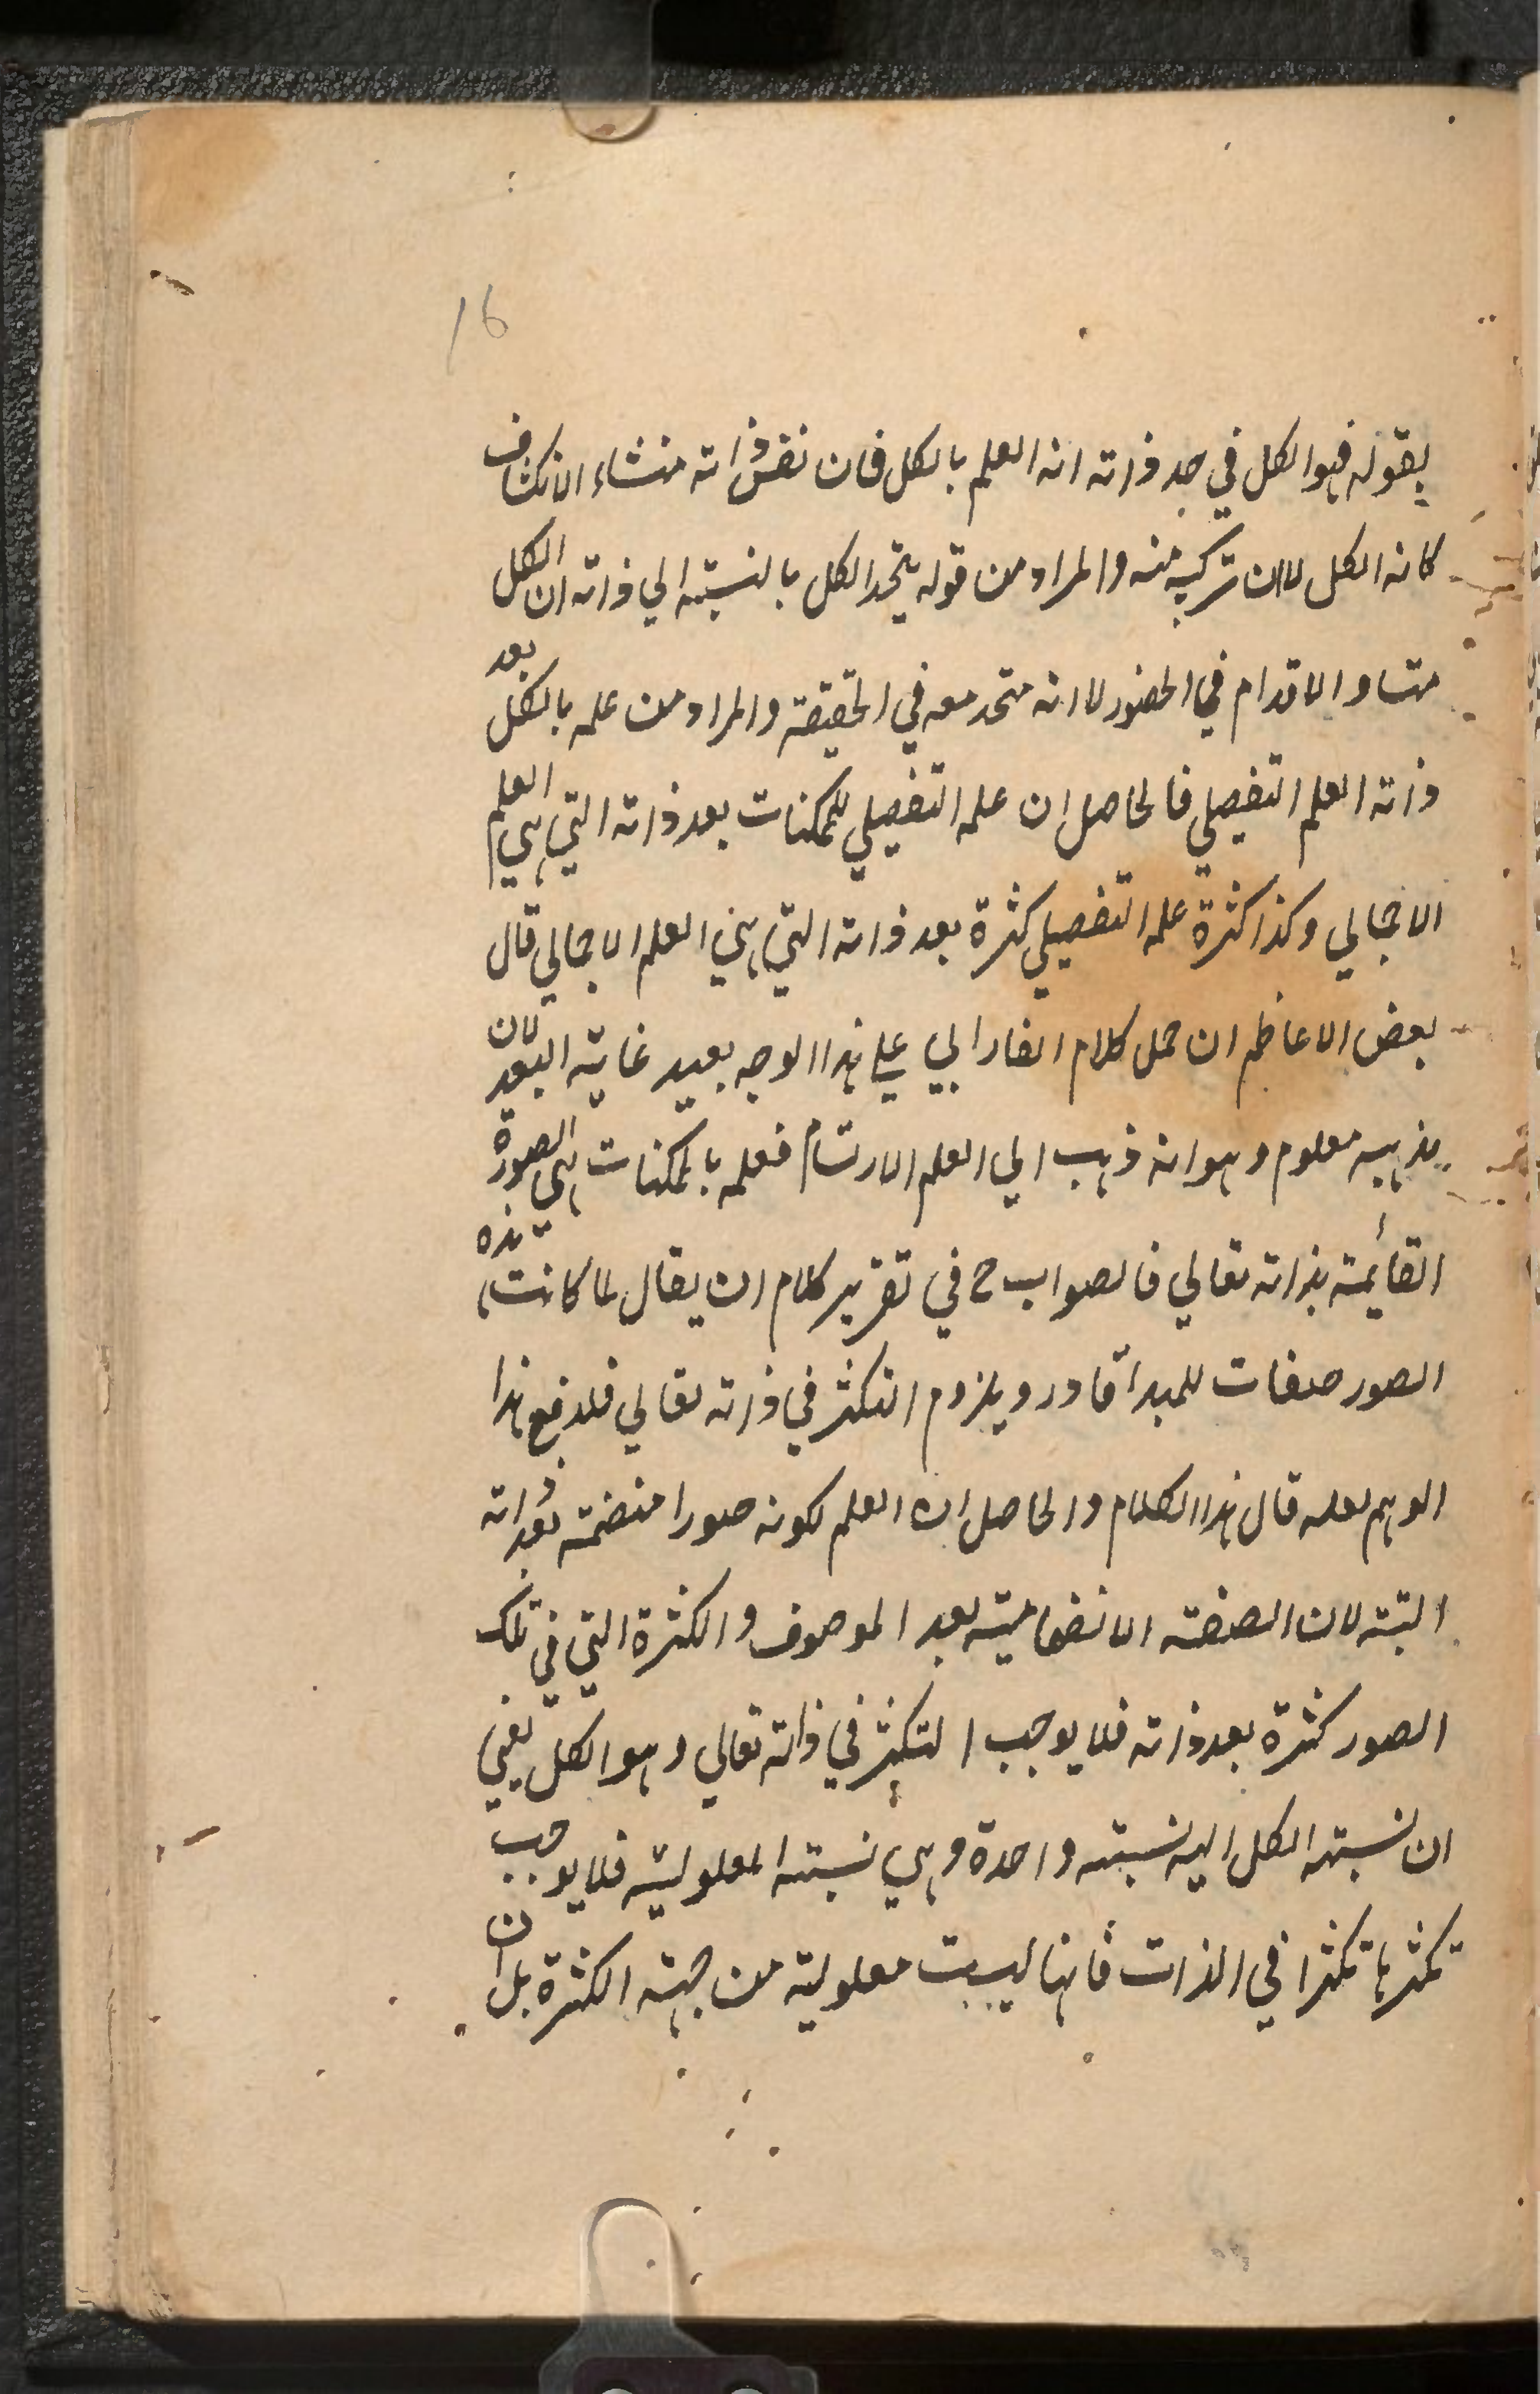 16
بقوله فهو الكل في حد ذاته انه العلم بالكل فان نفس ذاته منشاء الانكشاف
كانه الكل لا ان تركبه منه والمراد من قوله يتحد الكل بالنسبة الي ذاته ان الكل
متساو الاقدام في الحضور لا انه متحد معه في الحقيقة والمراد من علمه بالكل بعد
ذاته العلم التفصيلي فالحاصل ان علمه التفصيلي للممكنات بعد ذاته التي هي العلم
الاجمالي وكذا كثرة علمه التفصيلي كثرة بعد ذاته التي هي العلم الاجمالي قال
بعض الاعاظم ان حمل كلام الفارابي علي هذا الوجه بعيد غاية البعد لان
مذهبه معلوم وهو انه ذهب الي العلم الارتسام فعلمه بالممكنات هي الصورة
القائمة بذاته تعالي فالصواب ح في تقرير كلام ان يقال لما كانت هذه
الصور صفات للمبدأ قادر ويلزم التكثر في ذاته تعالي فلدفع هذا
الوهم لعله قال هذا الكلام والحاصل ان العلم لكونه صورا منضمة بعد ذاته
البتة لان الصفة الانضمامية بعد الموصوف والكثرة التي في تلك
الصور كثرة بعد ذاته فلا يوجب التكثر في ذاته تعالي وهو الكل يعني
ان نسبة الكل اليه نسبة واحدة وهي نسبة المعلولية فلا يوجب
تكثرها تكثرا في الذات فانها ليست معلولية من جهة الكثرة بل ان